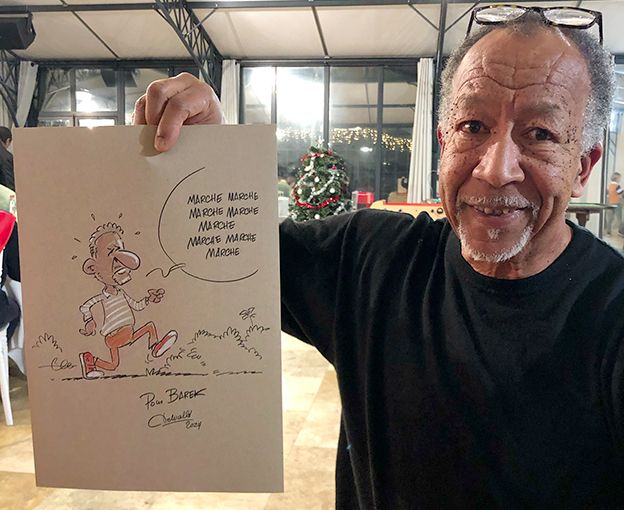 MARCHE MARCHE
MARCHE MARCHE
MARCHE
MARCHE MARCHE
MARCHE
Pour BAREK
2024